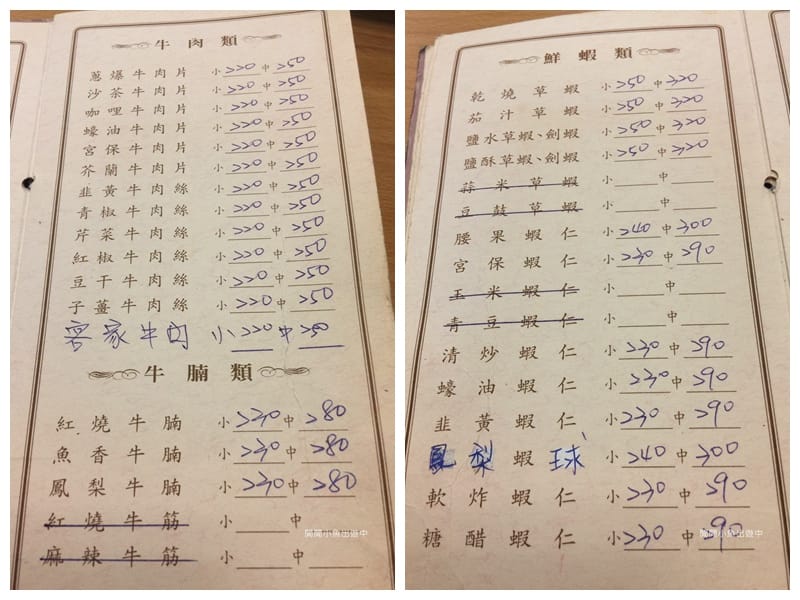 牛肉類
蔥爆牛肉片 小220 中250
沙茶牛肉片 小220 中250
咖哩牛肉片 小220 中250
蠔油牛肉片 小220 中250
宮保牛肉片 小220 中250
芥蘭牛肉片 小220 中250
韭黃牛肉絲 小220 中250
青椒牛肉絲 小220 中250
芹菜牛肉絲 小220 中250
紅椒牛肉絲 小220 中250
豆干牛肉絲 小220 中250
子薑牛肉絲 小220 中250
客家牛肉 小220 中250
牛腩類
紅燒牛腩 小230 中280
魚香牛腩 小230 中280
鳳梨牛腩 小230 中280
紅燒牛筋 小 中
麻辣牛筋 小 中
開開小魚出遊中
鮮蝦類
乾燒草蝦 小250 中320
茄汁草蝦 小250 中320
鹽水草蝦、劍蝦 小250 中320
鹽酥草蝦、劍蝦 小250 中320
蒜米草蝦 小 中
豆鼓草蝦 小 中
腰果蝦仁 小240 中300
宮保蝦仁 小230 中290
玉米蝦仁 小 中
青豆蝦仁 小 中
清炒蝦仁 小230 中290
蠔油蝦仁 小230 中290
韭黃蝦仁 小230 中290
鳳梨蝦球 小240 中300
軟炸蝦仁 小230 中290
糖醋蝦仁 小230 中290
開開小魚出遊中